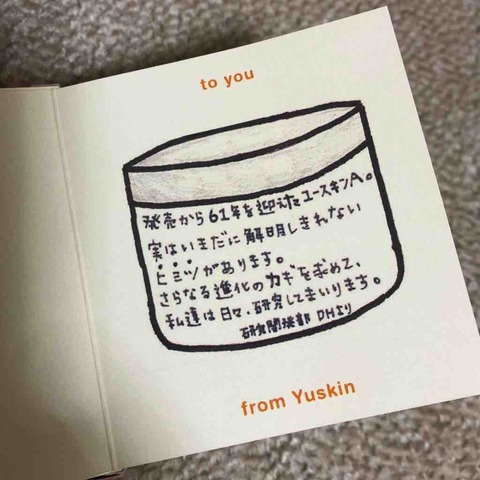 to you
発売から61年を迎えたユースキンA。
実はいまだに解明しきれない
ヒミツがあります。
さらなる進化のカギを求めて、
私達は日々、研究してまいります。
研究開発部 DHより
from Yuskin